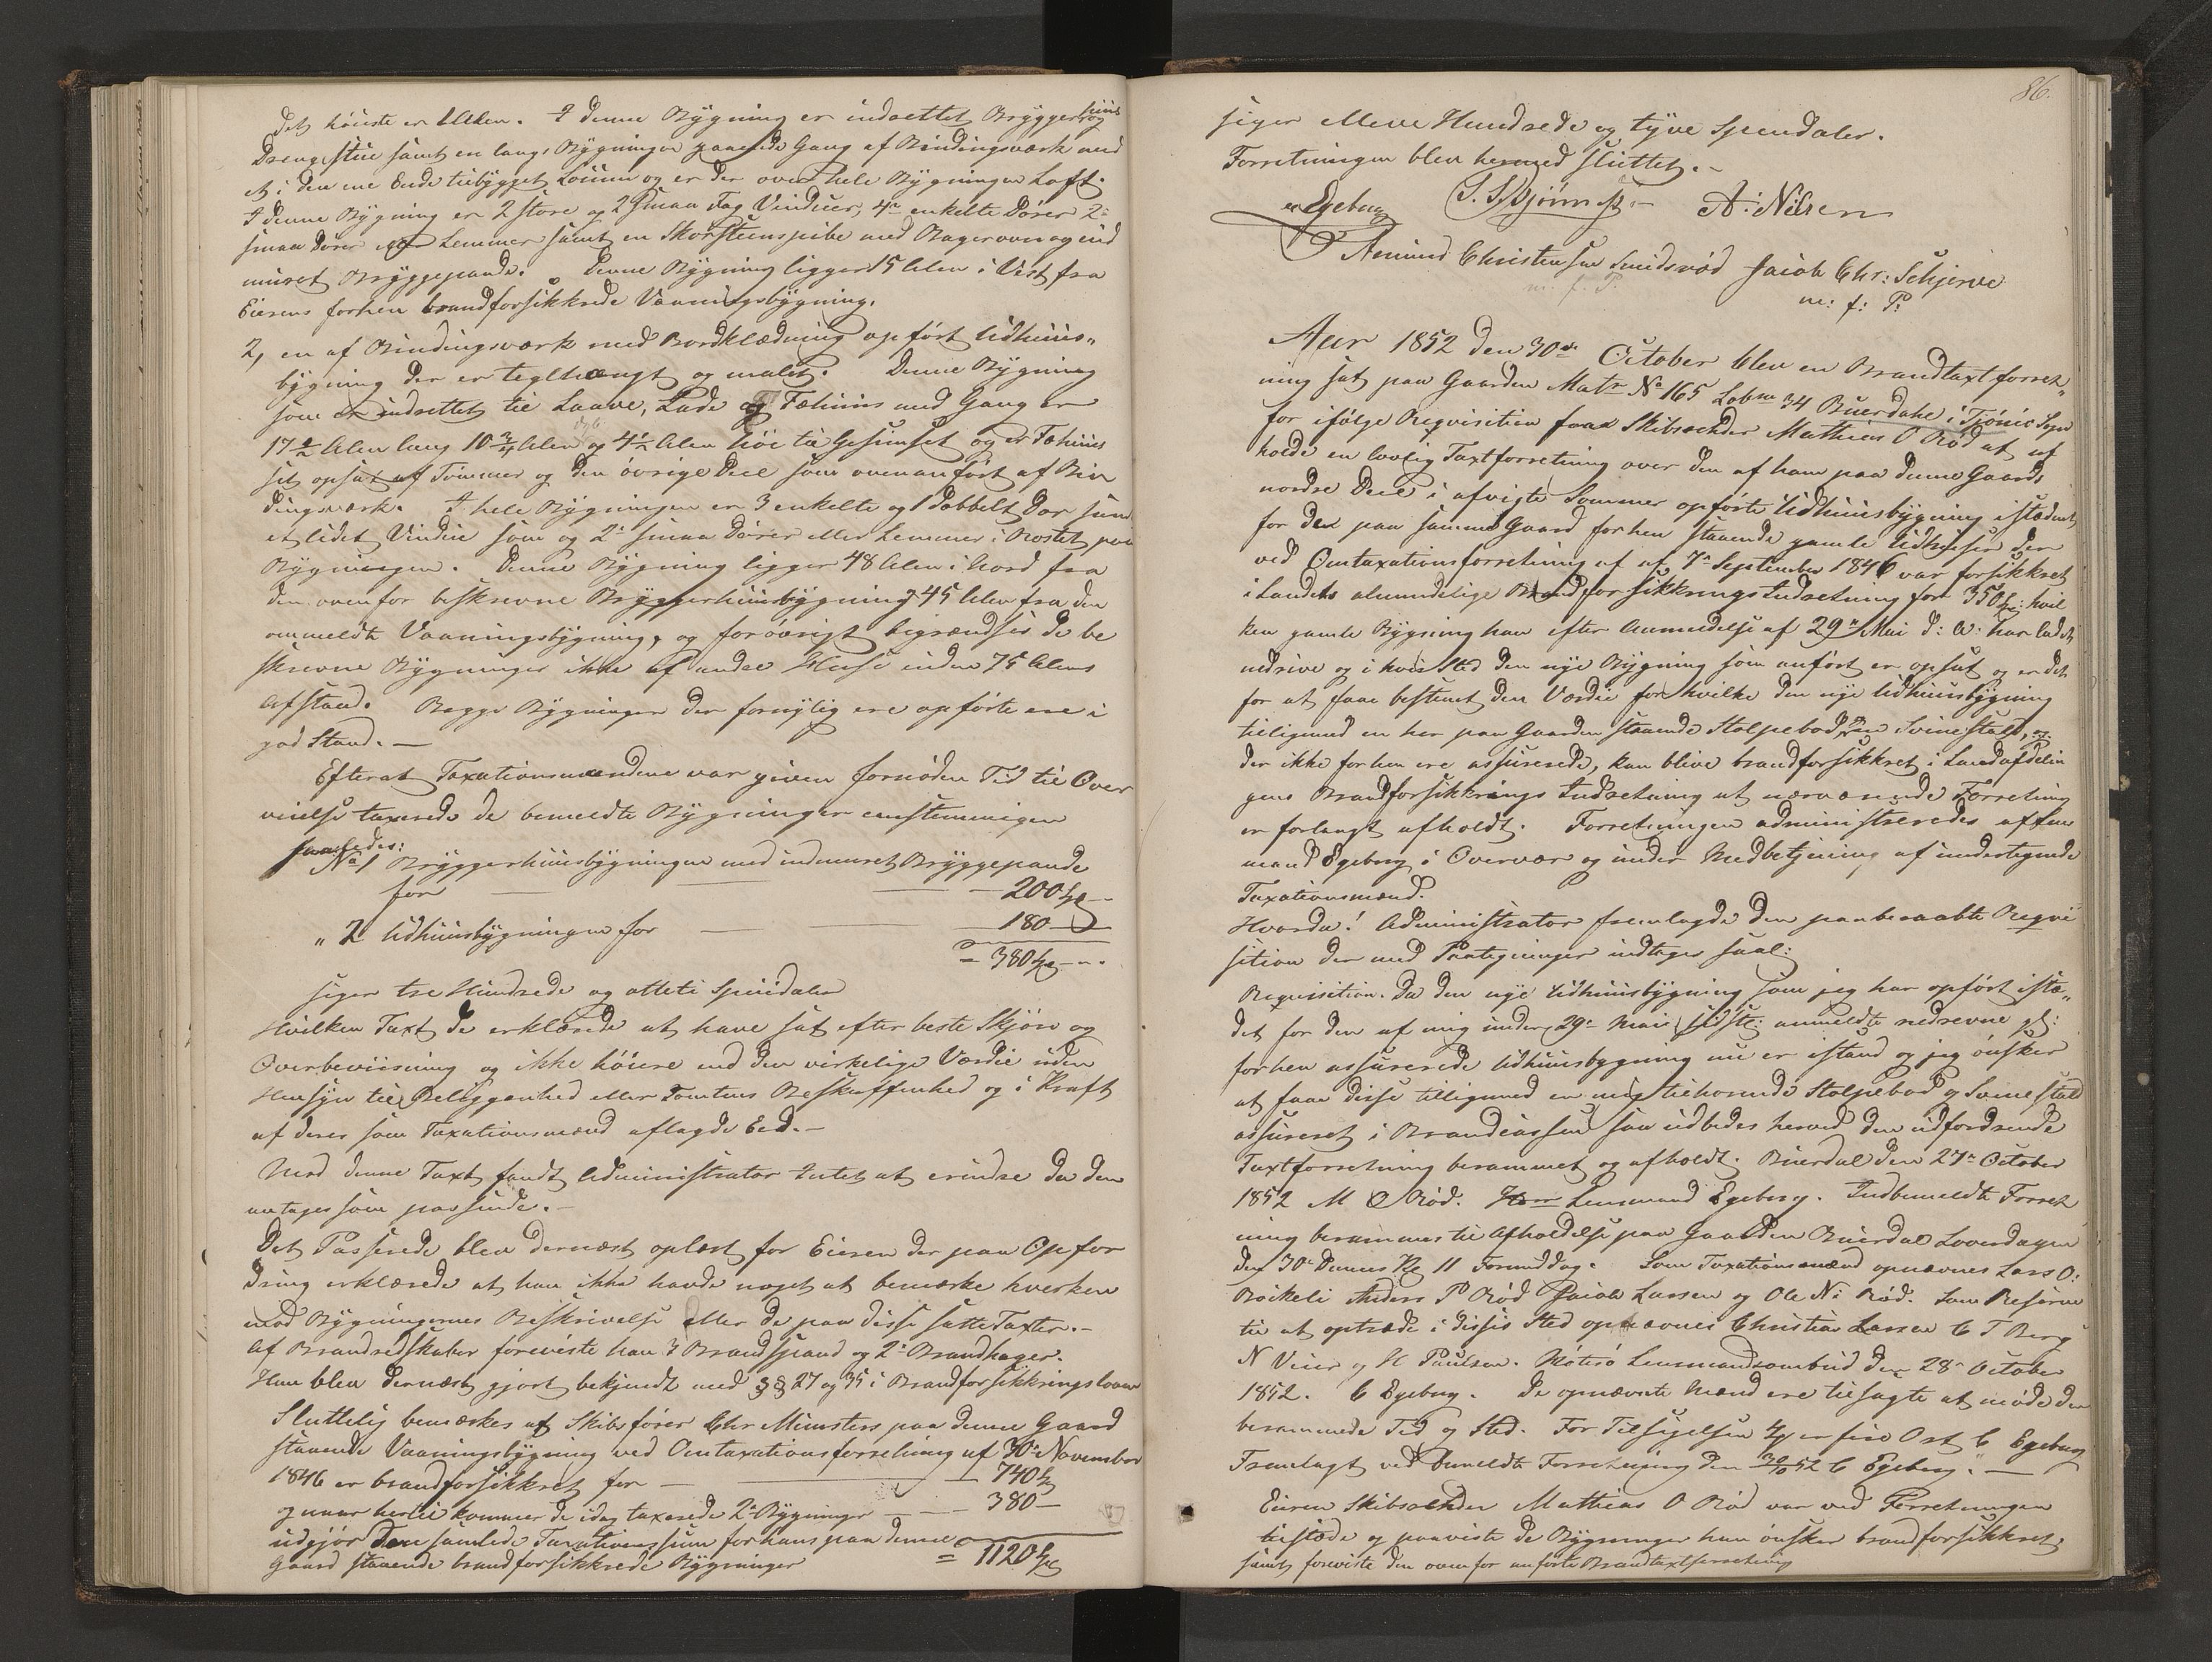 det høieste er Alen. I denne Bygning er indrettet Bryggerhuus og
Drengestue samt en langs Bygningen gaaende Gang af Bindingsværk med
et i den ene Ende tilbygget Locum og er der over hele Bygningen Loft.
I denne Bygning er 2 store og 2 smaa Fag Vinduer, 4re enkelte Døre 2
smaa Døre Lemmer samt en Skorsteenspibe med Bagerovn og ind
muret Bryggepande. Denne Bygning ligger 15 Alen i Vest fra
Eierens forhen brandforsikkrede Vaaningsbygning.
2, en af Bindingsværk med Bordklædning opført Udhuus„
bygning der er teglhængt og malet. Denne Bygning
som er indrettet til Laave, Lade og Fæhuus med Gang er
17 1/2 Alen lang 10 3/4 Alen og 4 1/2 Alen høi til Gesimset og er Fæhuus
set opsat af Tømmer og den øvrige Deel som ovenanført af Bin
dingsværk. I hele Bygningen er 3 enkelte og 1 dobbelt Dør samt
et lidet Vindue som og 2 smaa Døre eller Lemmer i Røstet paa
Bygningen. Denne Bygning ligger 48 Alen i Nord fra
den ovenfor beskrevne Bryggerhuusbygning 45 Alen fra den
ommeldte Vaaningsbygning, og forøvrigt begrændses de be
skrevne Bygninger ikke af andre Huse inden 75 Alens
Afstand. Begge Bygninger der fornylig ere opførte ere i
god Stand. —
Efterat Taxationsmændene var given fornøden Tid til Over
veielse taxerede de bemeldte Bygninger eenstemmigen
saaledes:
No 1 Bryggerhuusbygningen med indmuret Bryggepande
for — 200 Spd
„ 2 Udhuusbygningen for — 180 —
= 380 Spd
siger tre Hundrede og otteti Speciedaler
Hvilken Taxt de erklærede at have sat efter beste Skjøn og
Overbeviisning og ikke høiere end den virkelige Værdie uden
Hensyn til Beliggenhed eller Tomtens Beskaffenhed og i Kraft
af deres som Taxationsmænd aflagde Eed. —
Mod denne Taxt fandt Administrator Intet at erindre da den
antages som passende. —
Det Passerede blev dernæst oplæst for Eieren der paa Opfor
dring erklærede at han ikke havde noget at bemærke hverken
mod Bygningernes Beskrivelse eller de paa disse satte Taxter. —
Af Brandredskaber foreviste han 3 Brandspand og 2 Brandhager.
Han blev dernæst gjort bekjendt med §§ 27 og 35 i Brandforsikkringsloven
Sluttelig bemærkes at Skibsfører Chr Münsters paa denne Gaard
staaende Vaaningsbygning ved Omtaxationsforretning af 30 November
1846 er brandforsikkret for — 740 Spd
og naar hertil kommer de idag taxerede 2 Bygninger — 380 —
udgjør den samlede Taxationssum for hans paa denne
Gaard staaende brandforsikkrede Bygninger = 1120 Spd
86.
siger elleve Hundrede og tyve Speciedaler.
Forretningen blev hermed sluttet. —
Egeberg A. Nilsen
Amund Christensen Smidsrød Jacob Chr: Schjerve
m: f: P. m: f: P:
Aar 1852 den 30de October blev en Brandtaxt forret„
ning sat paa Gaarden Matr No 165 Løbne 34 Buerdahl i Tjømø Sogn
for ifølge Requisition fra Skibsrheder Mathias O Rød at af
holde en lovlig Taxtforretning over den af ham paa denne Gaards
nordre Deel i afvigte Sommer opførte Udhuusbygning istædet
for den paa samme Gaard forhen staaende gamle Udhuus der
ved Omtaxationsforretning af 7 September 1846 var forsikkret
i Landets almindelige Brandforsikkrings Indretning for 350 Spd: hvil
ken gamle Bygning han efter Anmeldelse af 29 Mai d: A: har ladet
nedrive og i hvis Sted den nye Bygning som anført er opsat og er det
for at faae bestemt den Værdie for hvilke den nye Udhuusbygning
tilligemed en her paa Gaarden staaende Stolpebod en Svinestald,
der ikke forhen ere assurerede, kan blive brandforsikkret i Landafdelin
gens Brandforsikkrings Indretning at nærværende Forretning
er forlangt afholdt. Forretningen administreredes af Lens
mand Egeberg i Overvær og under Medbetjening af undertegnede
Taxationsmænd.
Hvorda! Administrator fremlagde den paaberaabte Reqvi
sition der med Paategninger indtages saal:
Requisition. Da den nye Udhuusbygning som jeg har opført istæ„
det for den af mig under 29 Mai sidstl: anmeldte nedrevne gl:
forhen assurerede Udhuusbygning nu er istand og jeg ønsker
at faae disse tilligemed en mig tilhørende Stolpebod og Svinestald
assureret i Brandcassen saa udbedes herved den udfordrende
Taxtforretning berammet og afholdt. Buerdal den 27 October
1852 M O Rød. Lensmand Egeberg. Indbemeldte Forret
ning berammes til Afholdelse paa Gaarden Buerdal Løverdagen
den 30 dennes Kl 11 Formiddag. Som Taxationsmænd opnævnes Lars O:
Røikeli Anders P Rød Jacob Larsen og Ole N: Rød. Som Reserve
til at optræde i disses Sted opnævnes Christian Larsen C T Berg
N Veier og H Paulsen. Nøterø Lensmandsombud den 28 October
1852. C Egeberg. De opnævnte Mænd ere tilsagte at møde den
berammede Tid og Sted. For Tilsigelsen er fire Ort C Egeberg
Fremlagt ved bemeldte Forretning den 30/10 52 C Egeberg. —
Eieren Skibsrheder Mathias O Rød var ved Forretningen
tilstæde og paaviste de Bygninger han ønsker brandforsikkret
samt foreviste den ovenfor anførte Brandtaxtforretning